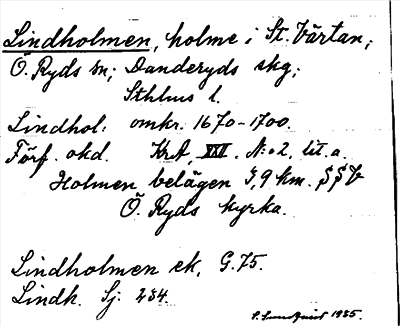 Lindholmen, holme i St. Värtan;
Ö. Ryds sn; Danderyds skg;
Sthlms l.
Lindhol: omkr. 1670-1700.
Förf. okd. KrA, XXI. N:o 2, lit. a.
Holmen belägen 3,9 km. SSV
Ö. Ryds kyrka.
Lindholmen ek. G. 75.
Lindh. Sj: 284.
1935.